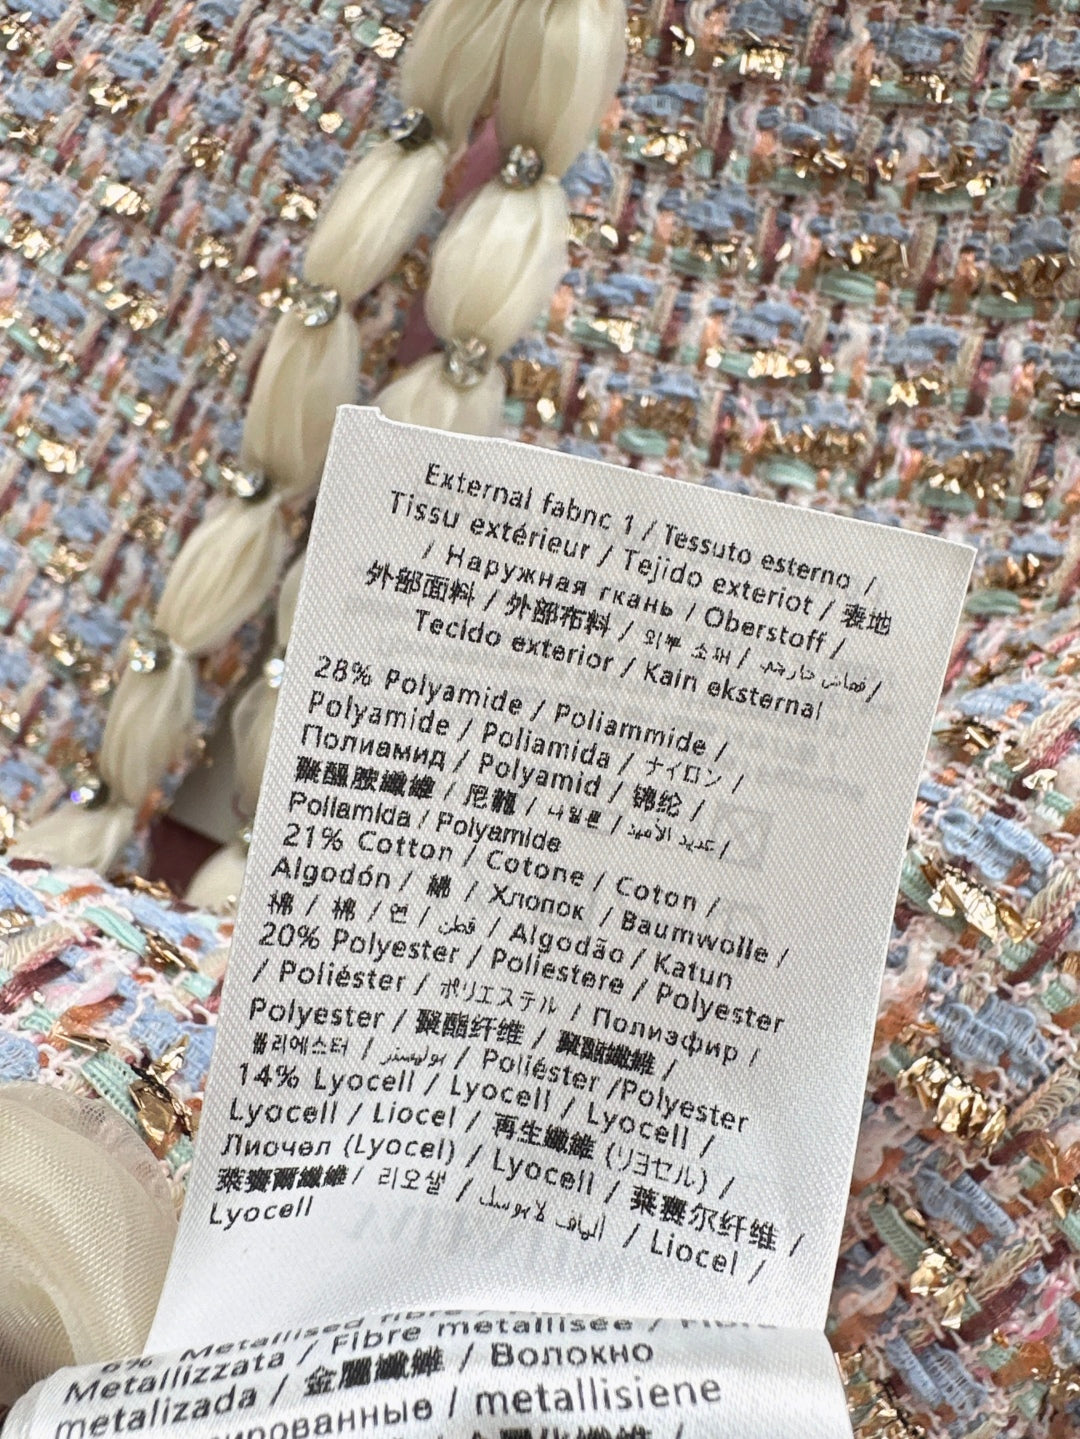 External fabnc 1 / Tessuto esterno /
Tissu extérieur / Tejido exteriot / 表地
/ Наружная гкань / Oberstoff /
外部面料 / 外部布料 / 외부 소재 / قماش خارجي /
Tecido exterior / Kain eksternal
28% Polyamide / Poliammide /
Polyamide / Poliamida / ナイロン /
Полиамид / Polyamid / 锦纶 /
纖維 / 尼龍 / 나일론 /
Poliamida / Polyamide
21% Cotton / Cotone / Coton /
Algodón / 綿 / Хлопок / Baumwolle /
棉 / 棉 / 면 / قطن / Algodão / Katun
20% Polyester / Poliestere / Polyester
/ Poliéster / ポリエステル / Полиэфир /
Polyester / 聚酯纤维 / 聚酯纖維 /
폴리에스터 / بوليستر / Poliéster /Polyester
14% Lyocell / Lyocell / Lyocell /
Lyocell / Liocel / 再生纖維 (リヨセル) /
Лиочел (Lyocel) / Lyocell / 莱赛尔纤维 /
萊賽爾纖維 / 리오셀 / / Liocel /
Lyocell
Metallised fibre /
Metallizzata / Fibre metallisée /
metalizada / 金属纖維 / Волокно
ированные / metallisiene